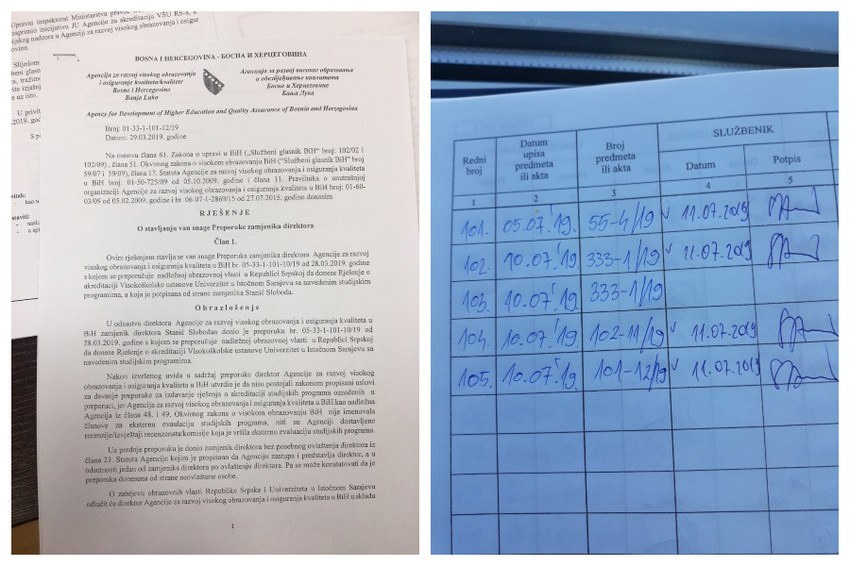 Upravni inspektorat Ministarstva pravde
zaprimio inicijativu JU Agencije za akreditaciju VŠU RS-a,
nadzora u Agenciji za razvoj visokog obrazovanja i osigur
BOSNA I HERCEGOVINA - БОСНА И ХЕРЦЕГОВИНА
Agencija za razvoj visokog obrazovanja
i osiguranje kvaliteta/kvalitete
Bosne i Hercegovine
Banja Luka
Агенција за развој високог образовања
и обезбјеђивање квалитета
Босне и Херцеговине
Бања Лука
Agency for Development of Higher Education and Quality Assurance of Bosnia and Herzegovina
Broj: 01-33-1-101-12/19
Datum: 29.03.2019. godine
Na osnovu člana 61. Zakona o upravi u BiH („Službeni glasnik BiH" broj: 102/02 i
102/09) , člana 51. Okvirnog zakona o visokom obrazovanju BiH ("Službeni glasnik BiH" broj
59/07 i 59/09), člana 17. Statuta Agencije za razvoj visokog obrazovanja i osiguranja kvaliteta
u BiH broj: 01-50-725/09 od 05.10.2009. godine i člana 11. Pravilnika o unutrašnjoj
organizaciji Agencije za razvoj visokog obrazovanja i osiguranja kvaliteta u BiH broj: 01-60-
03/09 od 05.02.2009. godine i br. 06-07-1-2869/15 od 27.07.2015. godine donosim
RJEŠENJE
O stavljanju van snage Preporuke zamjenika direktora
Član 1.
Ovim rješenjem stavlja se van snage Preporuka zamjenika direktora Agencije za razvoj
visokog obrazovanja i osiguranja kvaliteta u BiH br. 05-33-1-101-10/19 od 28.03.2019. godine
s kojom se preporučuje nadležnoj obrazovnoj vlasti u Republici Srpskoj da donese Rješenje o
akreditaciji Visokoškolske ustanove Univerzitet u Istočnom Sarajevu sa navedenim studijskim
programima, a koja je potpisana od strane zamjenika Stanić Sloboda.
Obrazloženje
U odsustvu direktora Agencije za razvoj visokog obrazovanja i osiguranja kvaliteta u
BiH zamjenik direktora Stanić Slobodan donio je preporuku br. 05-33-1-101-10/19 od
28.03.2019. godine s kojom se preporučuje nadležnoj obrazovnoj vlasti u Republici Srpskoj
da donese Rješenje o akreditaciji Visokoškolske ustanove Univerzitet u Istočnom Sarajevu sa
navedenim studijskim programima.
Nakon izvršenog uvida u sadržaj preporuke direktor Agencije za razvoj visokog
obrazovanja i osiguranja kvaliteta u BiH utvrdio je da nisu postojali zakonom propisani uslovi
za davanje preporuke za izdavanje rješenja o akreditaciji studijskih programa označenih u
preporuci, jer Agencija za razvoj visokog obrazovanja i osiguranja kvaliteta u BiH kao nadležna
Agencija iz člana 48. i 49. Okvirnog zakona o visokom obrazovanju BiH nije imenovala
članove za eksternu evaulaciju studijskih programa, niti su Agenciji dostavljene
recenzije/izvještaji recenzenata/komisije koja je vršila eksternu evaluaciju studijskih programa.
Uz prednje preporuku je donio zamjenik direktora bez posebnog ovlaštenja direktora iz
člana 23. Statuta Agencije kojim je propisano da Agenciju zastupa i predstavlja direktor, a u
odsutnosti jedan od zamjenika direktora po ovlaštenju direktora. Pa se može konstatovati da je
preporuka donesena od strane neovlaštene osobe.
O zahtjevu obrazovnih vlasti Republike Srpske i Univerziteta u Istočnom Sarajevu
odlučit će direktor Agencije za razvoj visokog obrazovanja i osiguranja kvaliteta u BiH u skladu
1
SLUŽBENIK
Redni broj Datum upisa predmeta ili akta Broj predmeta ili akta Datum Potpis
1 2 3 4 5
101. 05.07.'19. 55-4/19 11.07.2019
102. 10.07.'19. 333-1/19 11.07.2019
103. 10.07.'19. 333-1/19
104. 10.07.'19. 102-11/19 11.07.2019
105. 10.07.'19. 101-12/19 11.07.2019